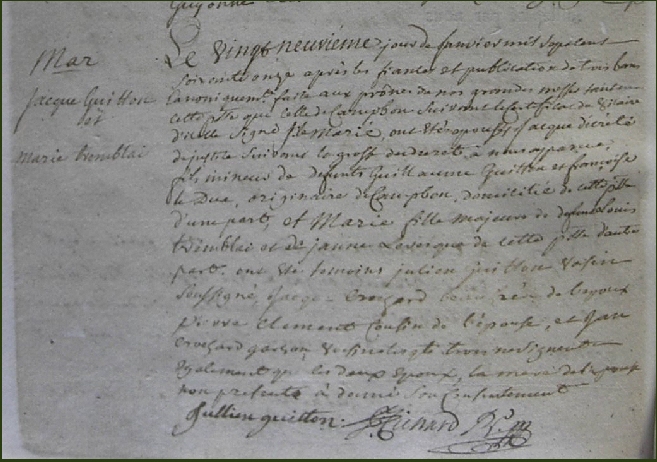 Guyonne
Mar
Jacque Guitton
et
Marie Tremblai
Le Vingt neuvième jour de Janvier mil sept cent
soixante onze après les fiances et publication de trois bans
canoniquemt faitte aux prônes de nos grandes messes tant en
cette psse que celle de Campbon suivant le certificat du vicaire
d'icelle signé Marié, ont été épousés Jacque décrété
de justice suivant la grosse du décret à nous aparue,
fils mineur de defunts Guillaume Guitton et françoise
le Duc, originaire de Campbon, domicilié de cette psse
d'une part, et Marie fille majeure de defunt Louis
tremblai et de jeanne Levesque de cette psse d'autre
part. ont été temoins julien guitton
soussigné, Jacque Crochard beau frère de l'epoux
pierre Clement Cousin de l'épouse, et Jan
Crochard garçon
egalement que les deux epoux, la mere de l'epouse
non presente a donné son consentement
Jullien guitton